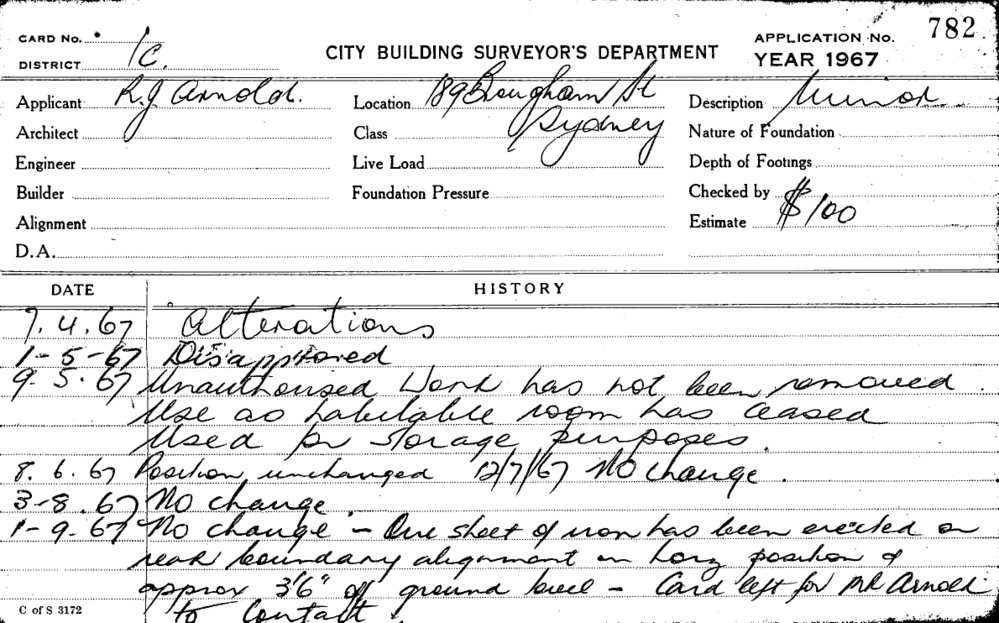 CARD No.
DISTRICT 1C.
CITY BUILDING SURVEYOR'S DEPARTMENT
APPLICATION No. 782
YEAR 1967
Applicant R.J. Arnold. Location 189 Brougham St Description Minor
Architect Class Sydney Nature of Foundation
Engineer Live Load Depth of Footings
Builder Foundation Pressure Checked by
Alignment Estimate $100
D.A.
DATE HISTORY
7.4.67 Alterations
1-5-67 Disapproved
9.5.67 Unauthorised Work has not been removed.
Use as habitable room has ceased
Used for storage purposes.
8.6.67 Position unchanged 12/7/67 No change.
3-8.67 No change.
1-9.67 No change - One sheet of iron has been erected on
rear boundary alignment in horz position &
approx 3'6" off ground level - Card left for Mr Arnold
to contact.
C of S 3172